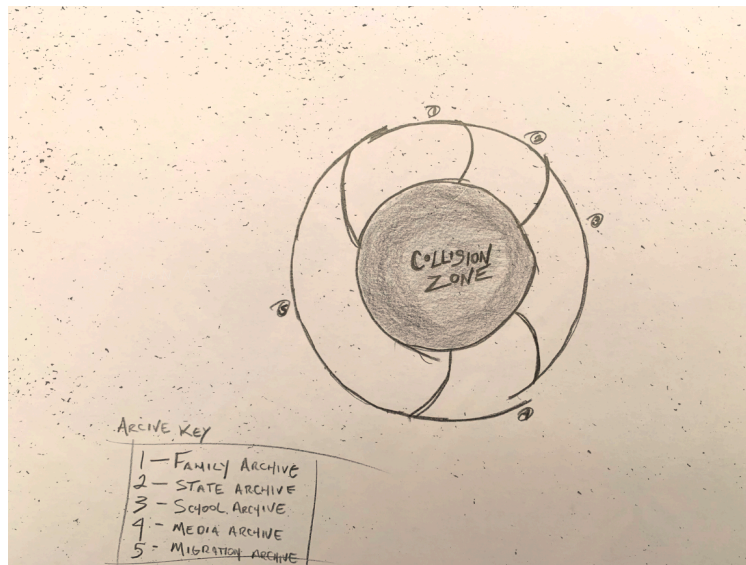 1
2
3
COLLISION
ZONE
5
4
ARCIVE KEY
1 — FAMILY ARCHIVE
2 — STATE ARCHIVE
3 — SCHOOL ARCHIVE
4 — MEDIA ARCHIVE
5 — MIGRATION ARCHIVE